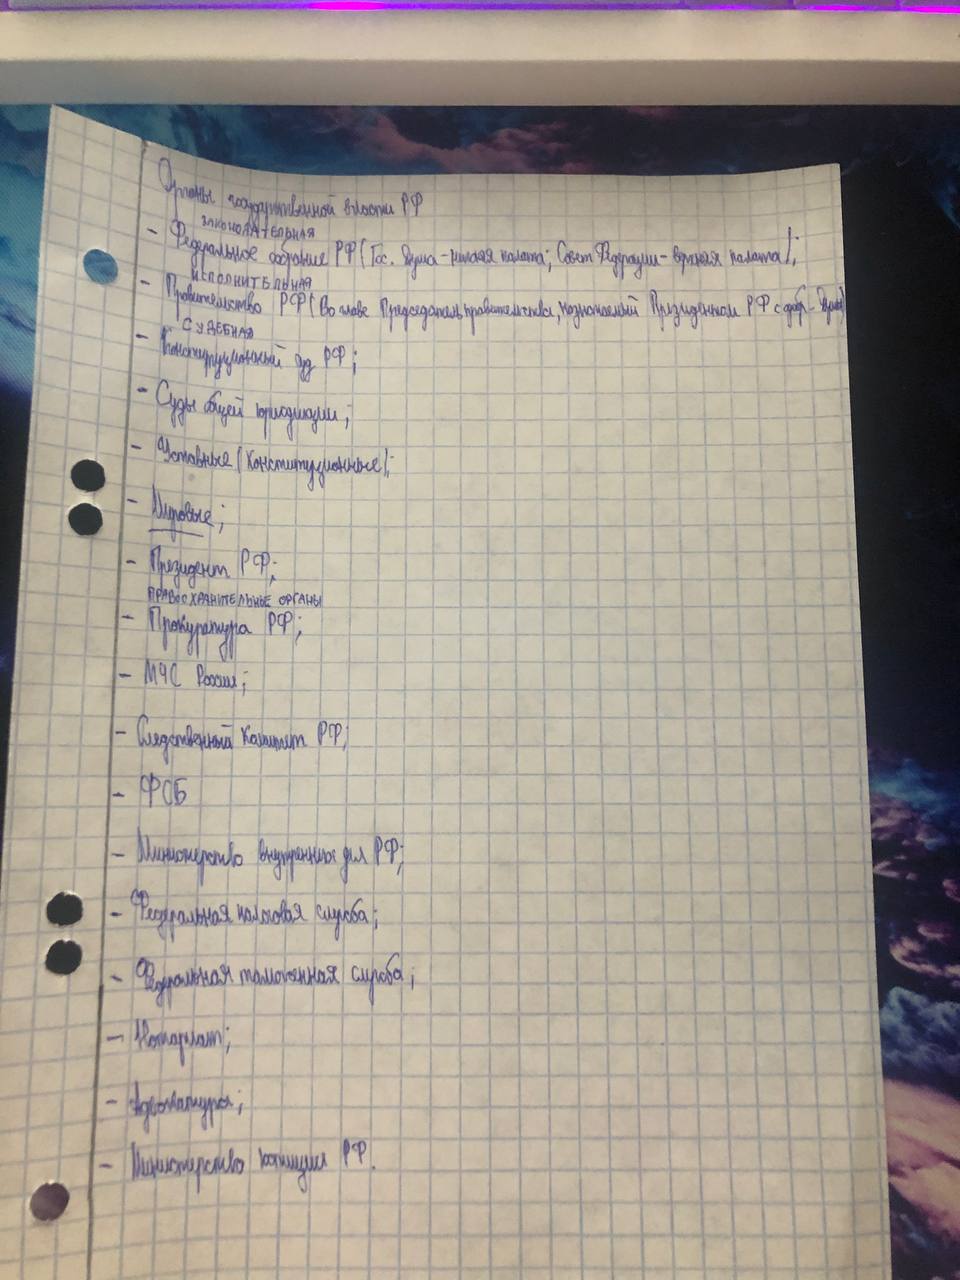 Органы государственной власти РФ
ЗАКОНОДАТЕЛЬНАЯ
- Федеральное собрание РФ (Гос. Дума - нижняя палата; Совет Федерации - верхняя палата);
ИСПОЛНИТЕЛЬНАЯ
- Правительство РФ (Во главе Председатель правительства, назначаемый Президентом РФ с одобр. Думы)
СУДЕБНАЯ
- Конституционный суд РФ;
- Суды общей юрисдикции;
- Уставные (Конституционные);
- Мировые;
- Президент РФ;
ПРАВООХРАНИТЕЛЬНЫЕ ОРГАНЫ
- Прокуратура РФ;
- МЧС России;
- Следственный комитет РФ;
- ФСБ
- Министерство внутренних дел РФ;
- Федеральная налоговая служба;
- Федеральная таможенная служба;
- Нотариат;
- Адвокатура;
- Министерство юстиции РФ.